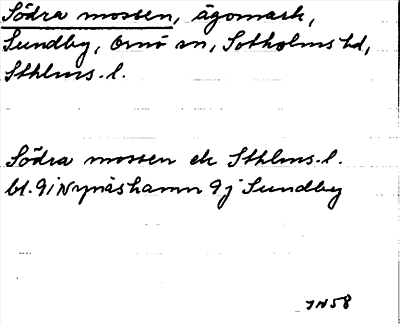 Södra mossen, ägomark,
Sundby, Ornö sn, Sotholms hd,
Sthlms. l.
Södra mossen ek Sthlms. l.
bl. 9i Nynäshamn 9j Sundby
JN58